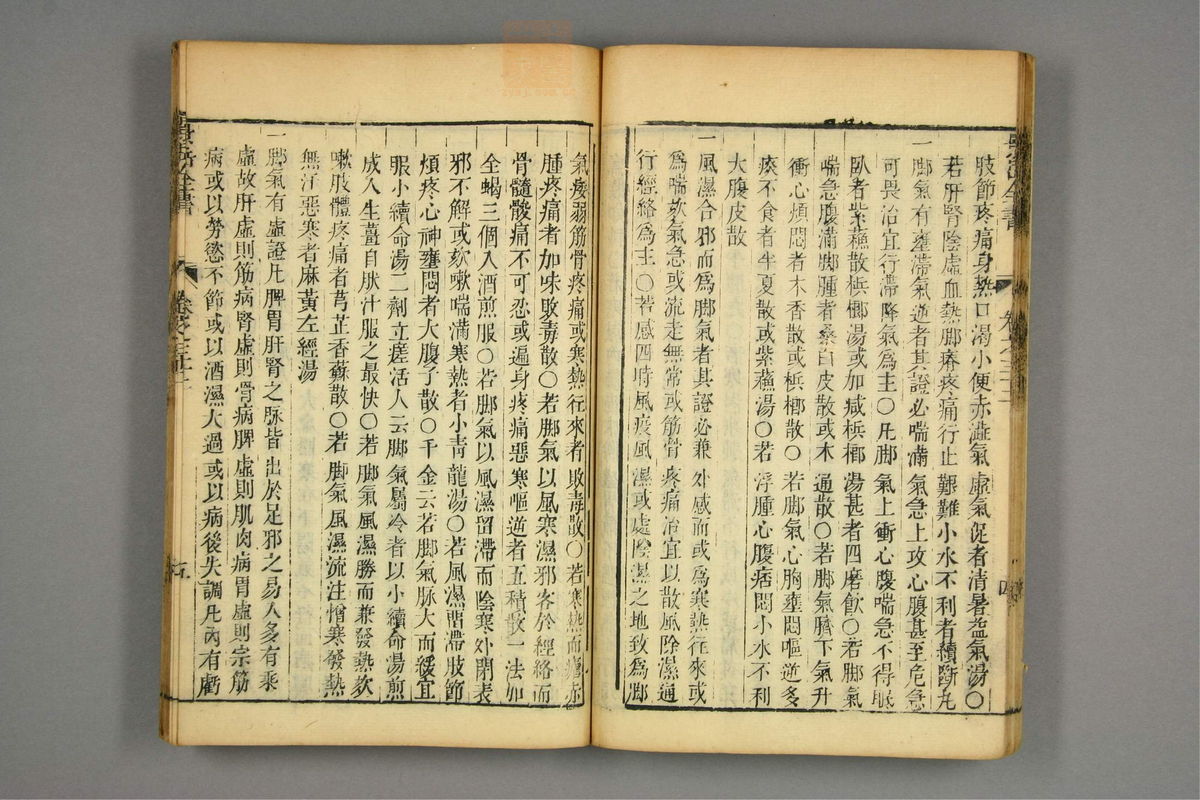 肢節疼痛身熱口渴小便赤澁氣虛氣促者清暑益氣湯○
若肝腎陰虛血熱脚瘠疼痛行止艱難小水不利者續斷丸
一脚氣有壅滯氣逆者其證必喘滿氣急上攻心腹甚至危急
可畏治宜行滯降氣為主○凡脚氣上衝心腹喘急不得眠
臥者紫蘓散檳榔湯或加减檳榔湯甚者四磨飲○若脚氣
喘急腹滿脚腫者桑白皮散或木通散○若脚氣臍下氣升
衝心煩悶者木香散或檳榔散○若脚氣心胸壅悶嘔逆多
痰不食者半夏散或紫蘓湯○若浮腫心腹痞悶小水不利
大腹皮散
一風濕合邪而為脚氣者其證必兼外感而或為寒熱行來或
為喘欬氣急或流走無常或筋骨疼痛治宜以散風除濕通
行經絡為主○若感四時風疫風濕或處陰濕之地致為脚
氣痿弱筋骨疼痛或寒熱行來者敗毒散○若寒熱而
腫疼痛者加味敗毒散○若脚氣以風寒濕邪客於經絡而
骨髓酸痛不可忍或遍身疼痛惡寒嘔逆者五積散一法加
全蝎三個入酒煎服○若脚氣以風濕留滯而陰寒外閉表
邪不解或欬嗽喘滿寒熱者小青龍湯○若風濕畱滯肢節
煩疼心神壅悶者大腹子散○千金云若脚氣脉大而緩宜
服小續命湯二劑立瘥活人云脚氣屬冷者以小續命湯煎
成入生薑自然汁服之最快○若脚氣風濕勝而兼發熱欬
嗽肢體疼痛者芎芷香蘇散○若脚氣風濕流注憎寒發熱
無汗惡寒者麻黃左經湯
一脚氣有虛證凡脾胃肝腎之脉皆出於足邪之易人多有乘
虛故肝虛則筋病腎虛則骨病脾虛則肌肉病胃虛則宗筋
病或以勞慾不節或以酒濕大過或以病後失調凡內有虧